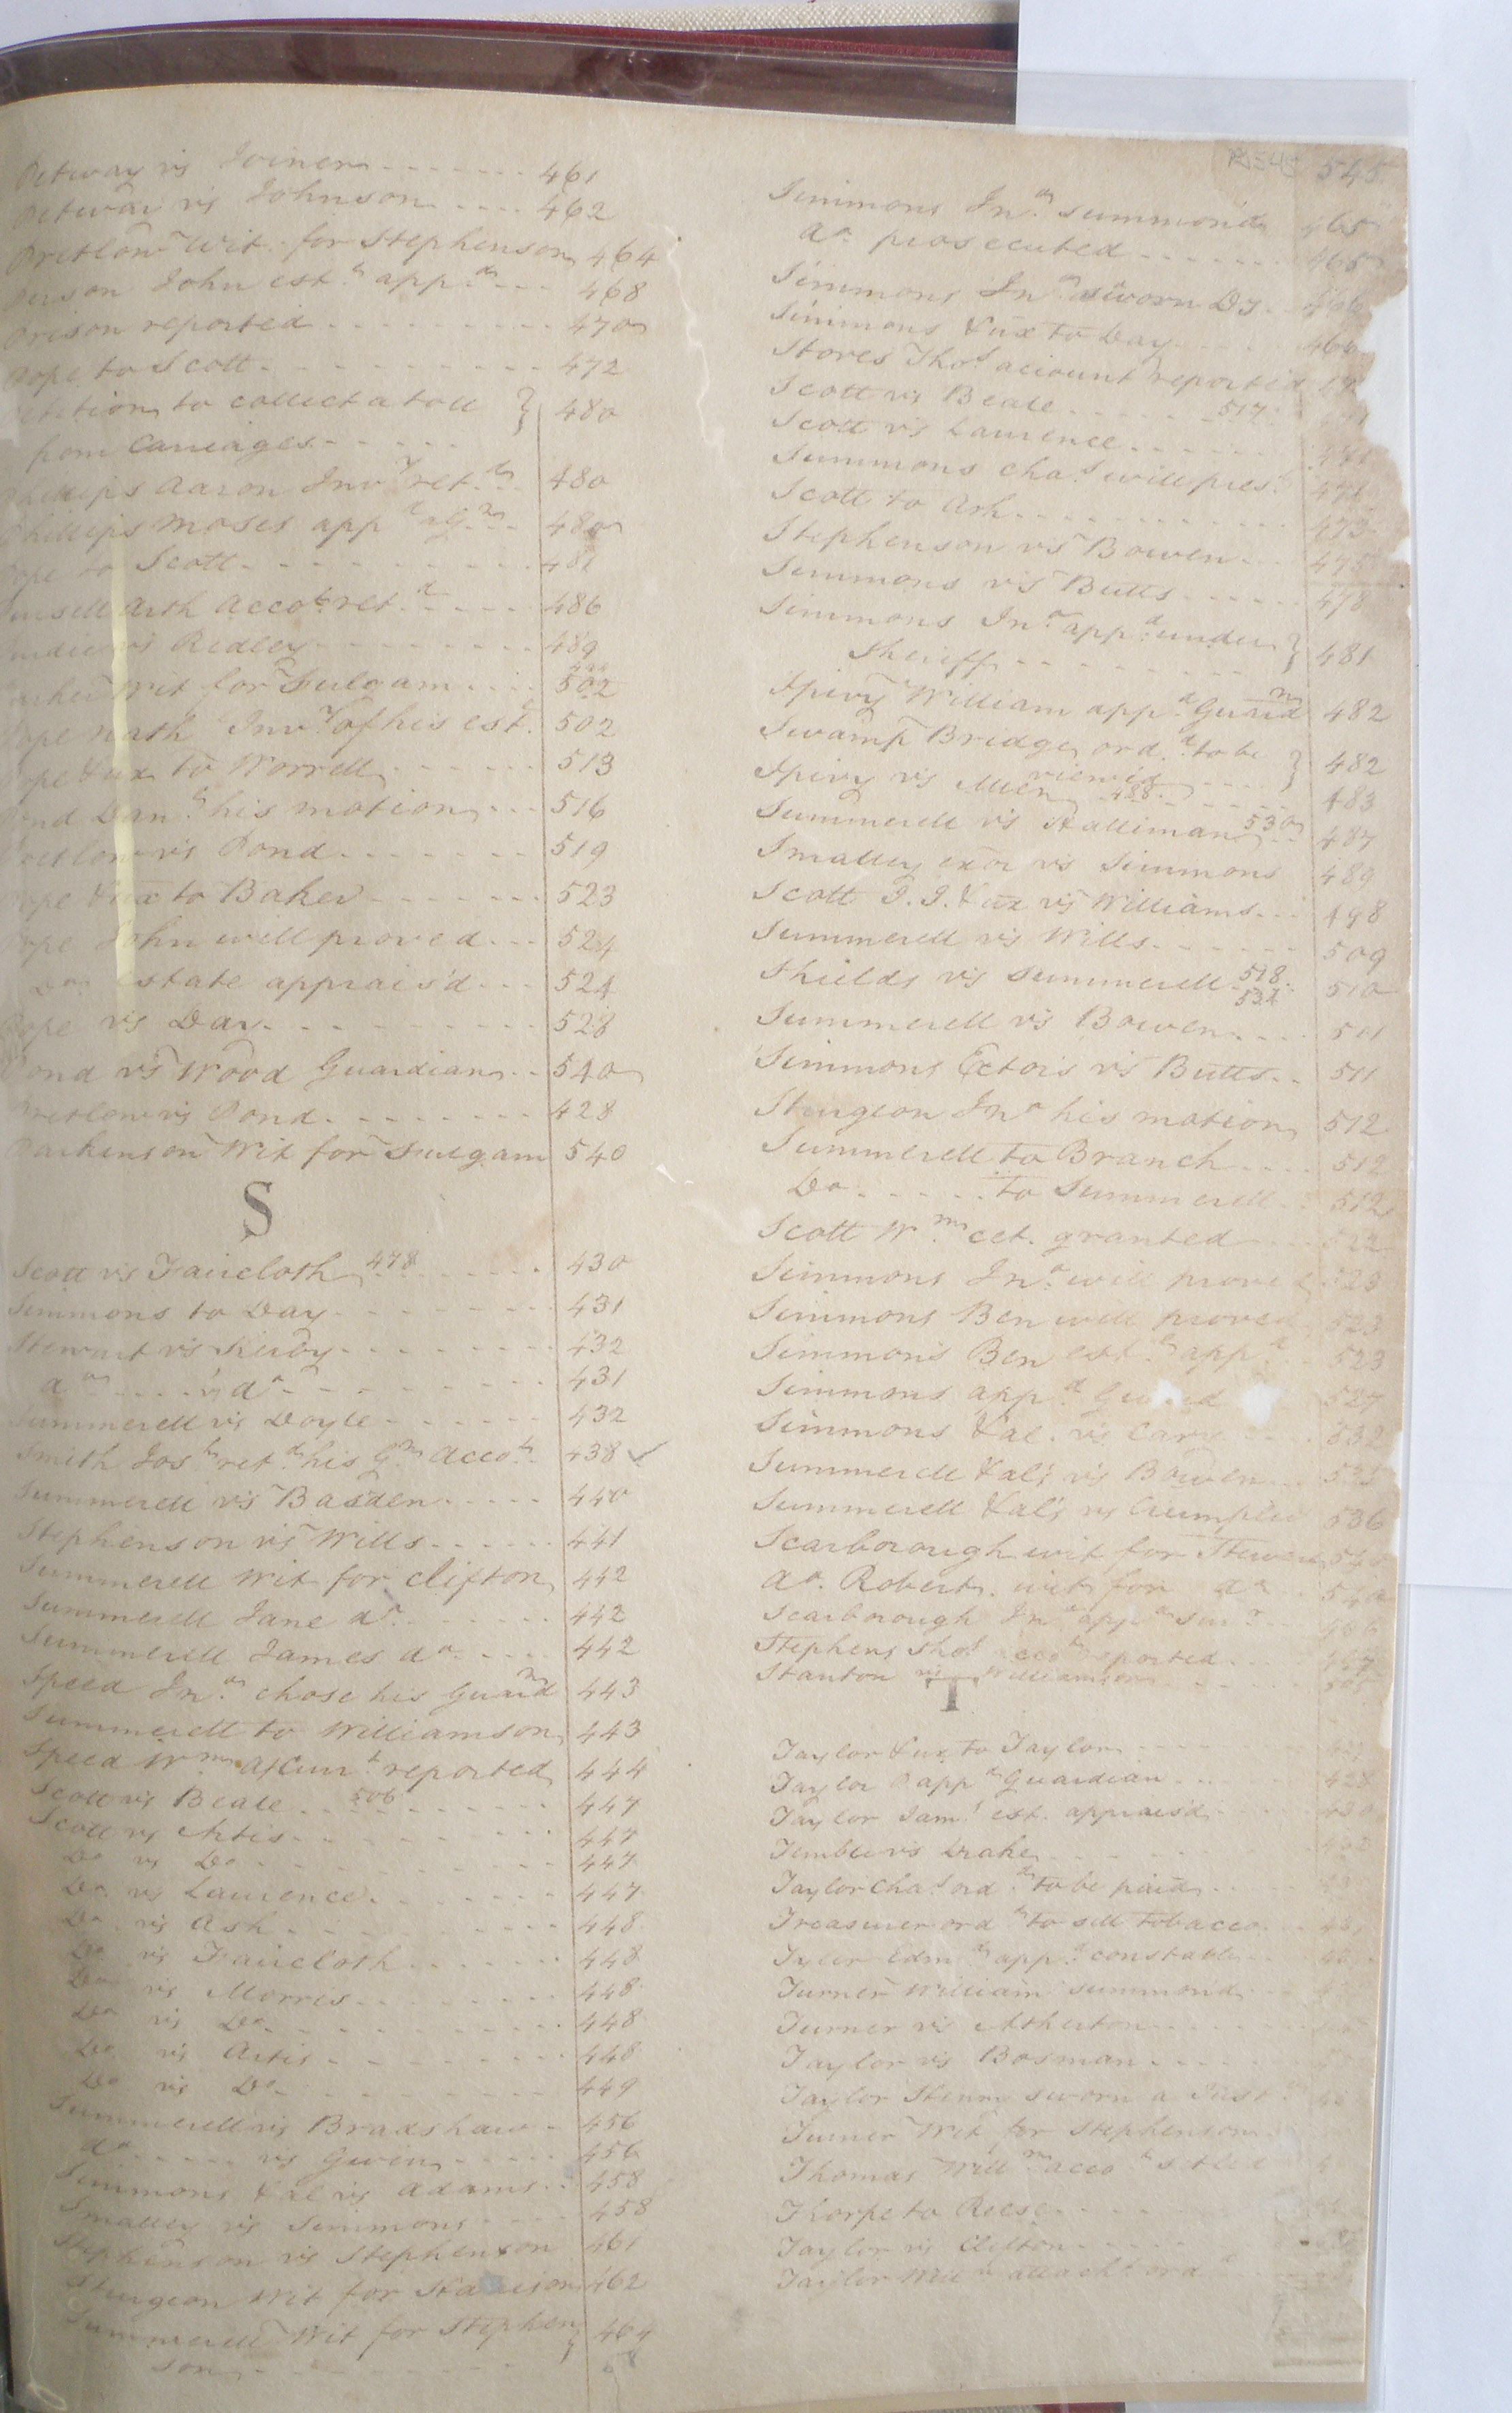 545
Petway vs Joiner 461
Petway vs Johnson 462
Pretlow Wit. for Stephenson 464
Person John est. app.d 468
Prison reported 470
Pope to Scott 472
Petition to collect a toll } 480
from Carriages
Phillips Aaron Inv.y ret.d 480
Phillips Moses app.d G.n 480
Pope to Scott 482
Arth Acco.t ret.d 486
vs Ridley 489
Wit for Fulgam 502
Pope Nath Inv.y of his est. 502
Pope & ux to Worrell 513
Pond Dan.l his motion 516
Pretlow vs Pond 519
Pope & ux to Baker 523
Pope John will proved 524
Do estate apprais'd 524
Pope vs Day 528
Pond vs Wood Guardian 540
Pretlow vs Pond 428
Parkinson Wit for Fulgam 540
S
Scott vs Faircloth 478 430
Simmons to Day 431
Stewart vs Kirby 432
do vs do 431
Summerell vs Doyle 432
Smith Jos.h ret.d his G.n Acco.t 438
Summerell vs Basden 440
Stephenson vs Wills 441
Summerell Wit for Clifton 442
Summerell Jane do 442
Summerell James do 442
Speed Jn.o chose his Guard.n 443
Summerell to Williamson 443
Speed W.m reported 444
Scott vs Beale 506 447
Scott vs Artis 447
Do vs Do 447
Do vs Laurence 447
Do vs Ash 448
Do vs Faircloth 448
Do vs Morris 448
Do vs Do 448
Do vs Artis 448
Do vs Do 449
Summerell vs Bradshaw 456
do vs Gwin 456
Simmons & al vs Adams 458
Smalley vs Simmons 458
Stephenson vs Stephenson 461
Sturgeon Wit for 462
Summerell Wit for Stephen } 464
son
Simmons Jn.o summon'd 465
do prosecuted 465
Simmons Jn.o sworn Dy. 466
Simmons & ux to Day 466
Stores Tho.s account reported
Scott vs Beale 517
Scott vs Laurence 471
Simmons Cha.s will pres.d 471
Scott to Ash 473
Stephenson vs Bowen 475
Simmons vs Butts 478
Simmons Jn.o app.d under } 481
Sheriff
Spivy William app.d Guard.n 482
Swamp Bridge ord.d to be } 482
viewed
Spivy vs Allen 488 483
Summerell vs Stalliman 530 487
Smalley exor vs Simmons 489
Scott J. J. & ux vs Williams 498
Summerell vs Wills 509
Shields vs Summerell 518 531 510
Summerell vs Bowen 501
Simmons Extors vs Butts 511
Sturgeon Jn.o his motion 512
Summerell to Branch 512
Do to Summerell 512
Scott W.m cet. granted 522
Simmons Jn.o will proved 523
Simmons Ben will proved 523
Simmons Ben est. app.d 523
Simmons app.d 527
Simmons & al. vs Cary 532
Summerell & als vs Bowen 535
Summerell & als vs Crumpler 536
Scarborough wit for Stewart
do. Robert. wit for do 540
Scarborough Jn.o app.d sur.r 486
Stephens Tho.s reported
Stanton vs Williamson
T
Taylor & ux to Taylor
Taylor P app.d Guardian 428
Taylor Sam.l est. apprais'd 430
Timblee vs Drake
Taylor Cha.s ord.d to be paid
Treasurer ord.d to sell Tobacco
Tyler Edm.d app.d constable
Turner William summon'd
Turner vs Atherton
Taylor vs Bosman
Taylor Henry sworn a Just.
Turner Wit for Stephenson
Thomas Will.m acco.t
Thorpe to Reese
Taylor vs Clifton
Taylor attach.t ord.d